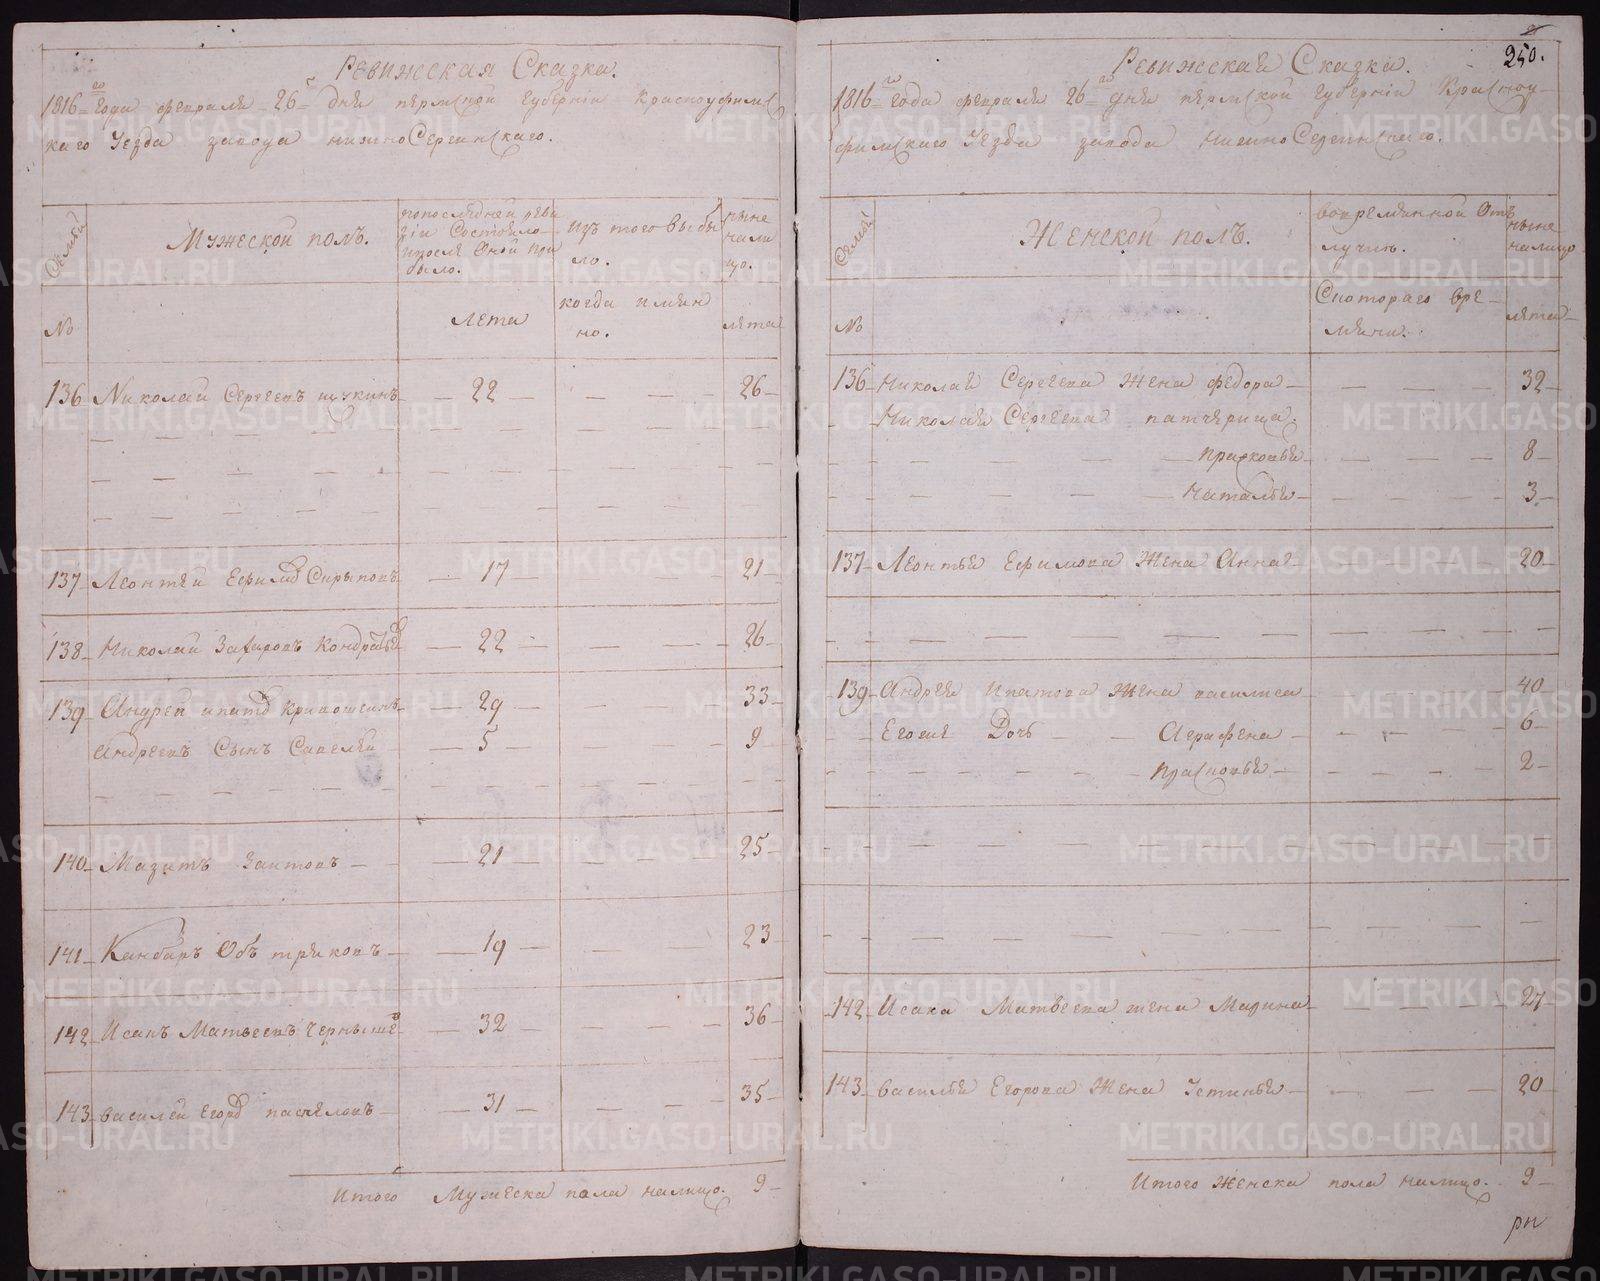 Ревижская Сказка.
1816-го Года февраля 26-г дня пермской Губернiи Красноуфимс
каго Уезда завода нижноСергинскаго.
Семьи
Мужеской полъ.
попоследней реви
зiи Состояло
ипосле Оной при
было.
Изъ того выбы
ло.
ныне
нали
цо.
№
Лета
когда имян
но.
лета
136 Николай Сергеевъ щукинъ 22 26
137 Леонтей Ефимов 17 21
138 Николай Захаровъ Кондратьев 22 26
139 Андрей ипатов кривошеинъ 29 33
Андреевъ Сынъ Савелей 5 9
140 Мазитъ Заитовъ 21 25
141 Канбаръ Объ трековъ 19 23
142 Исакъ Матвеевъ Чернышев 32 36
143 василей Егоров 31 35
Итого Мужеска пола налицо. 9
250.
Ревижская Сказка.
1816-го Года февраля 26-го дня пермской Губернiи Красноу-
фимскаго Уезда завода нижноСергинскаго.
Семьи
Женской полъ.
вовремянной Отъ
лучке.
ныне
налицо
№
Скотораго вре-
мяни.
лета
136 Николая Сергеева Жена федора 32
Николая Сергеева патчерица
прасковья 8
Наталья 3
137 Леонтья Ефимова Жена Анна 20
139 Андрея Ипатова Жена василиса 40
Егоже Дочь Аграфена 6
прасковья 2
142 Исака Матвеева жена Марина 27
143 василья Егорова Жена Устинья 20
Итого Женска пола налицо. 9
METRIKI.GASO-URAL.RU